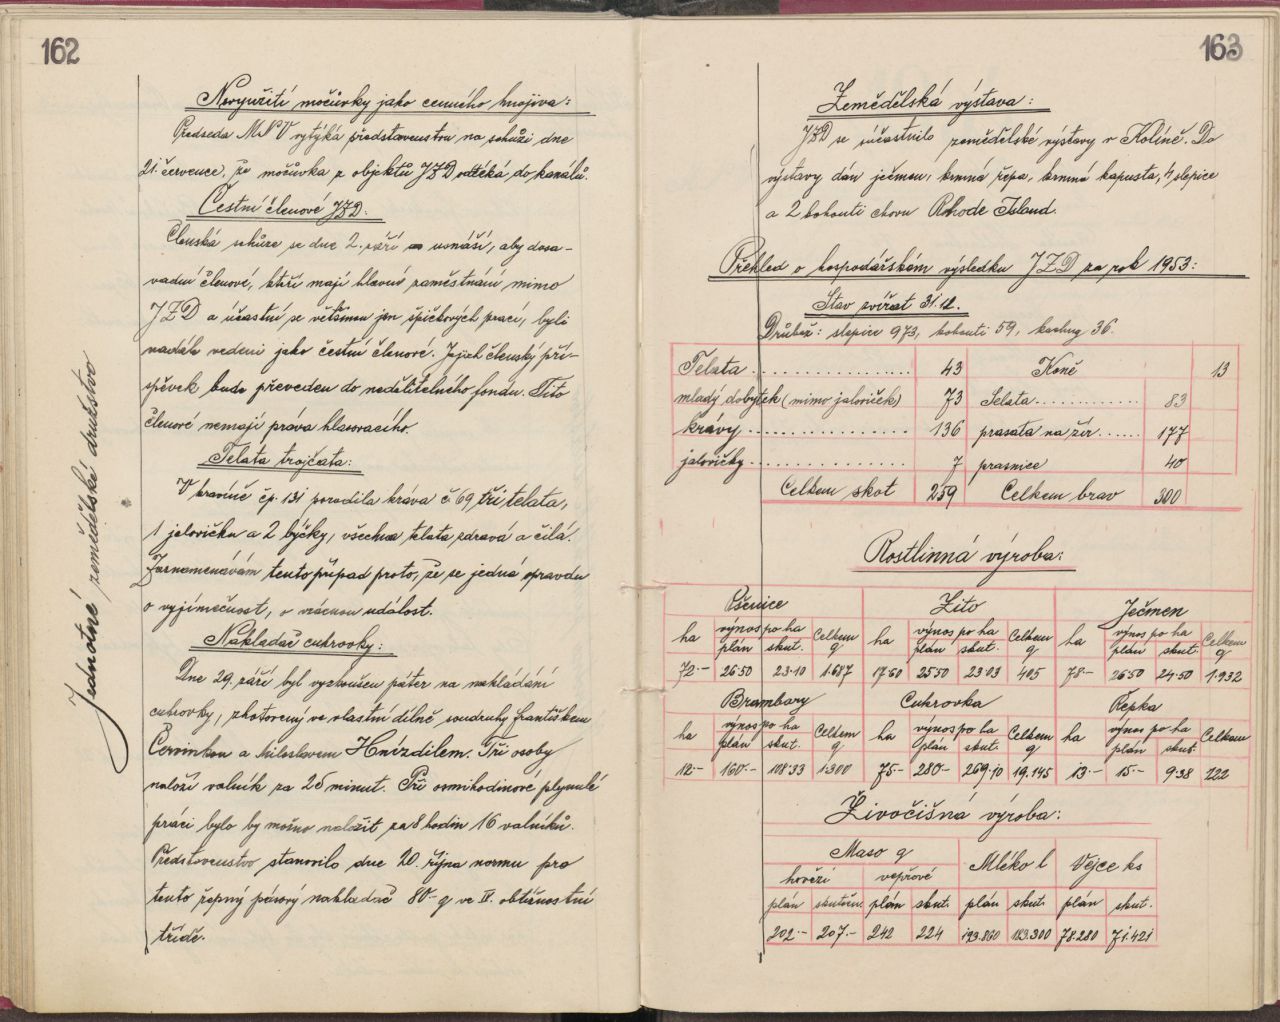 162
Jednotné zemědělské družstvo
Nevyužití močůvky jako cenného hnojiva:
Předseda MNV vytýká představenstvu na schůzi dne
21. července, že močůvka z objektů JZD odtéká do kanálů.
Čestní členové JZD.
Členská schůze se dne 2. září usnáší, aby dosa-
vadní členové, kteří mají hlavní zaměstnání mimo
JZD a účastní se většinou jen špičkových prací, byli
nadále vedeni jako čestní členové. Jejich členský pří-
spěvek bude převeden do nedělitelného fondu. Tito
členové nemají práva hlasovacího.
Telata trojčata:
V kravíně čp. 131 porodila kráva č. 69 tři telata,
1 jalovičku a 2 býčky, všechna telata zdravá a čilá.
Zaznamenávám tento případ proto, že se jedná opravdu
o vyjímečnost, o vzácnou událost.
Nakladač cukrovky:
Dne 29. září byl vyzkoušen páter na nakládání
cukrovky, zhotovený ve vlastní dílně soudruhy Františkem
Červinkou a Miloslavem Hnízdilem. Tři osoby
naloží valník za 25 minut. Při osmihodinové plynulé
práci bylo by možno naložit za 8 hodin 16 valníků.
Představenstvo stanovilo dne 20. října normu pro
tento řepný pásový nakladač 80 q ve IV. obtížnostní
třídě.
163
Zemědělská výstava:
JZD se účastnilo zemědělské výstavy v Kolíně. Do
výstavy dán ječmen, krmná řepa, krmná kapusta, 4 slepice
a 2 kohouti chovu Rhode Island.
Přehled o hospodářském výsledku JZD za rok 1953:
Stav zvířat 31.12.
Drůbež: slepice 973, kohouti 59, kachny 36.
Telata . . . . . . . . 43 Koně 13
mladý dobytek (mimo jaloviček) 73 Selata . . . . . . . . 83
krávy . . . . . . . . 136 prasata na žír . . . . . 177
jalovičky . . . . . . . . 7 prasnice 40
Celkem skot 259 Celkem brav 300
Rostlinná výroba:
Pšenice Žito Ječmen
ha výnos po ha Celkem q ha výnos po ha Celkem q ha výnos po ha Celkem q
plán skut. plán skut. plán skut.
72.- 26.50 23.10 1.687 17.60 25.50 23.03 405 78.- 26.50 24.50 1.932
Brambory Cukrovka Řepka
ha výnos po ha Celkem q ha výnos po ha Celkem q ha výnos po ha Celkem
plán skut. plán skut. plán skut.
12.- 160.- 108.33 1.300 75.- 280.- 269.10 19.145 13.- 15.- 9.38 122
Živočišná výroba:
Maso q Mléko l Vejce ks
hovězí vepřové
plán skutečn. plán skut. plán skut. plán skut.
202.- 207.- 242 224 193.860 183.300 78.280 71.421